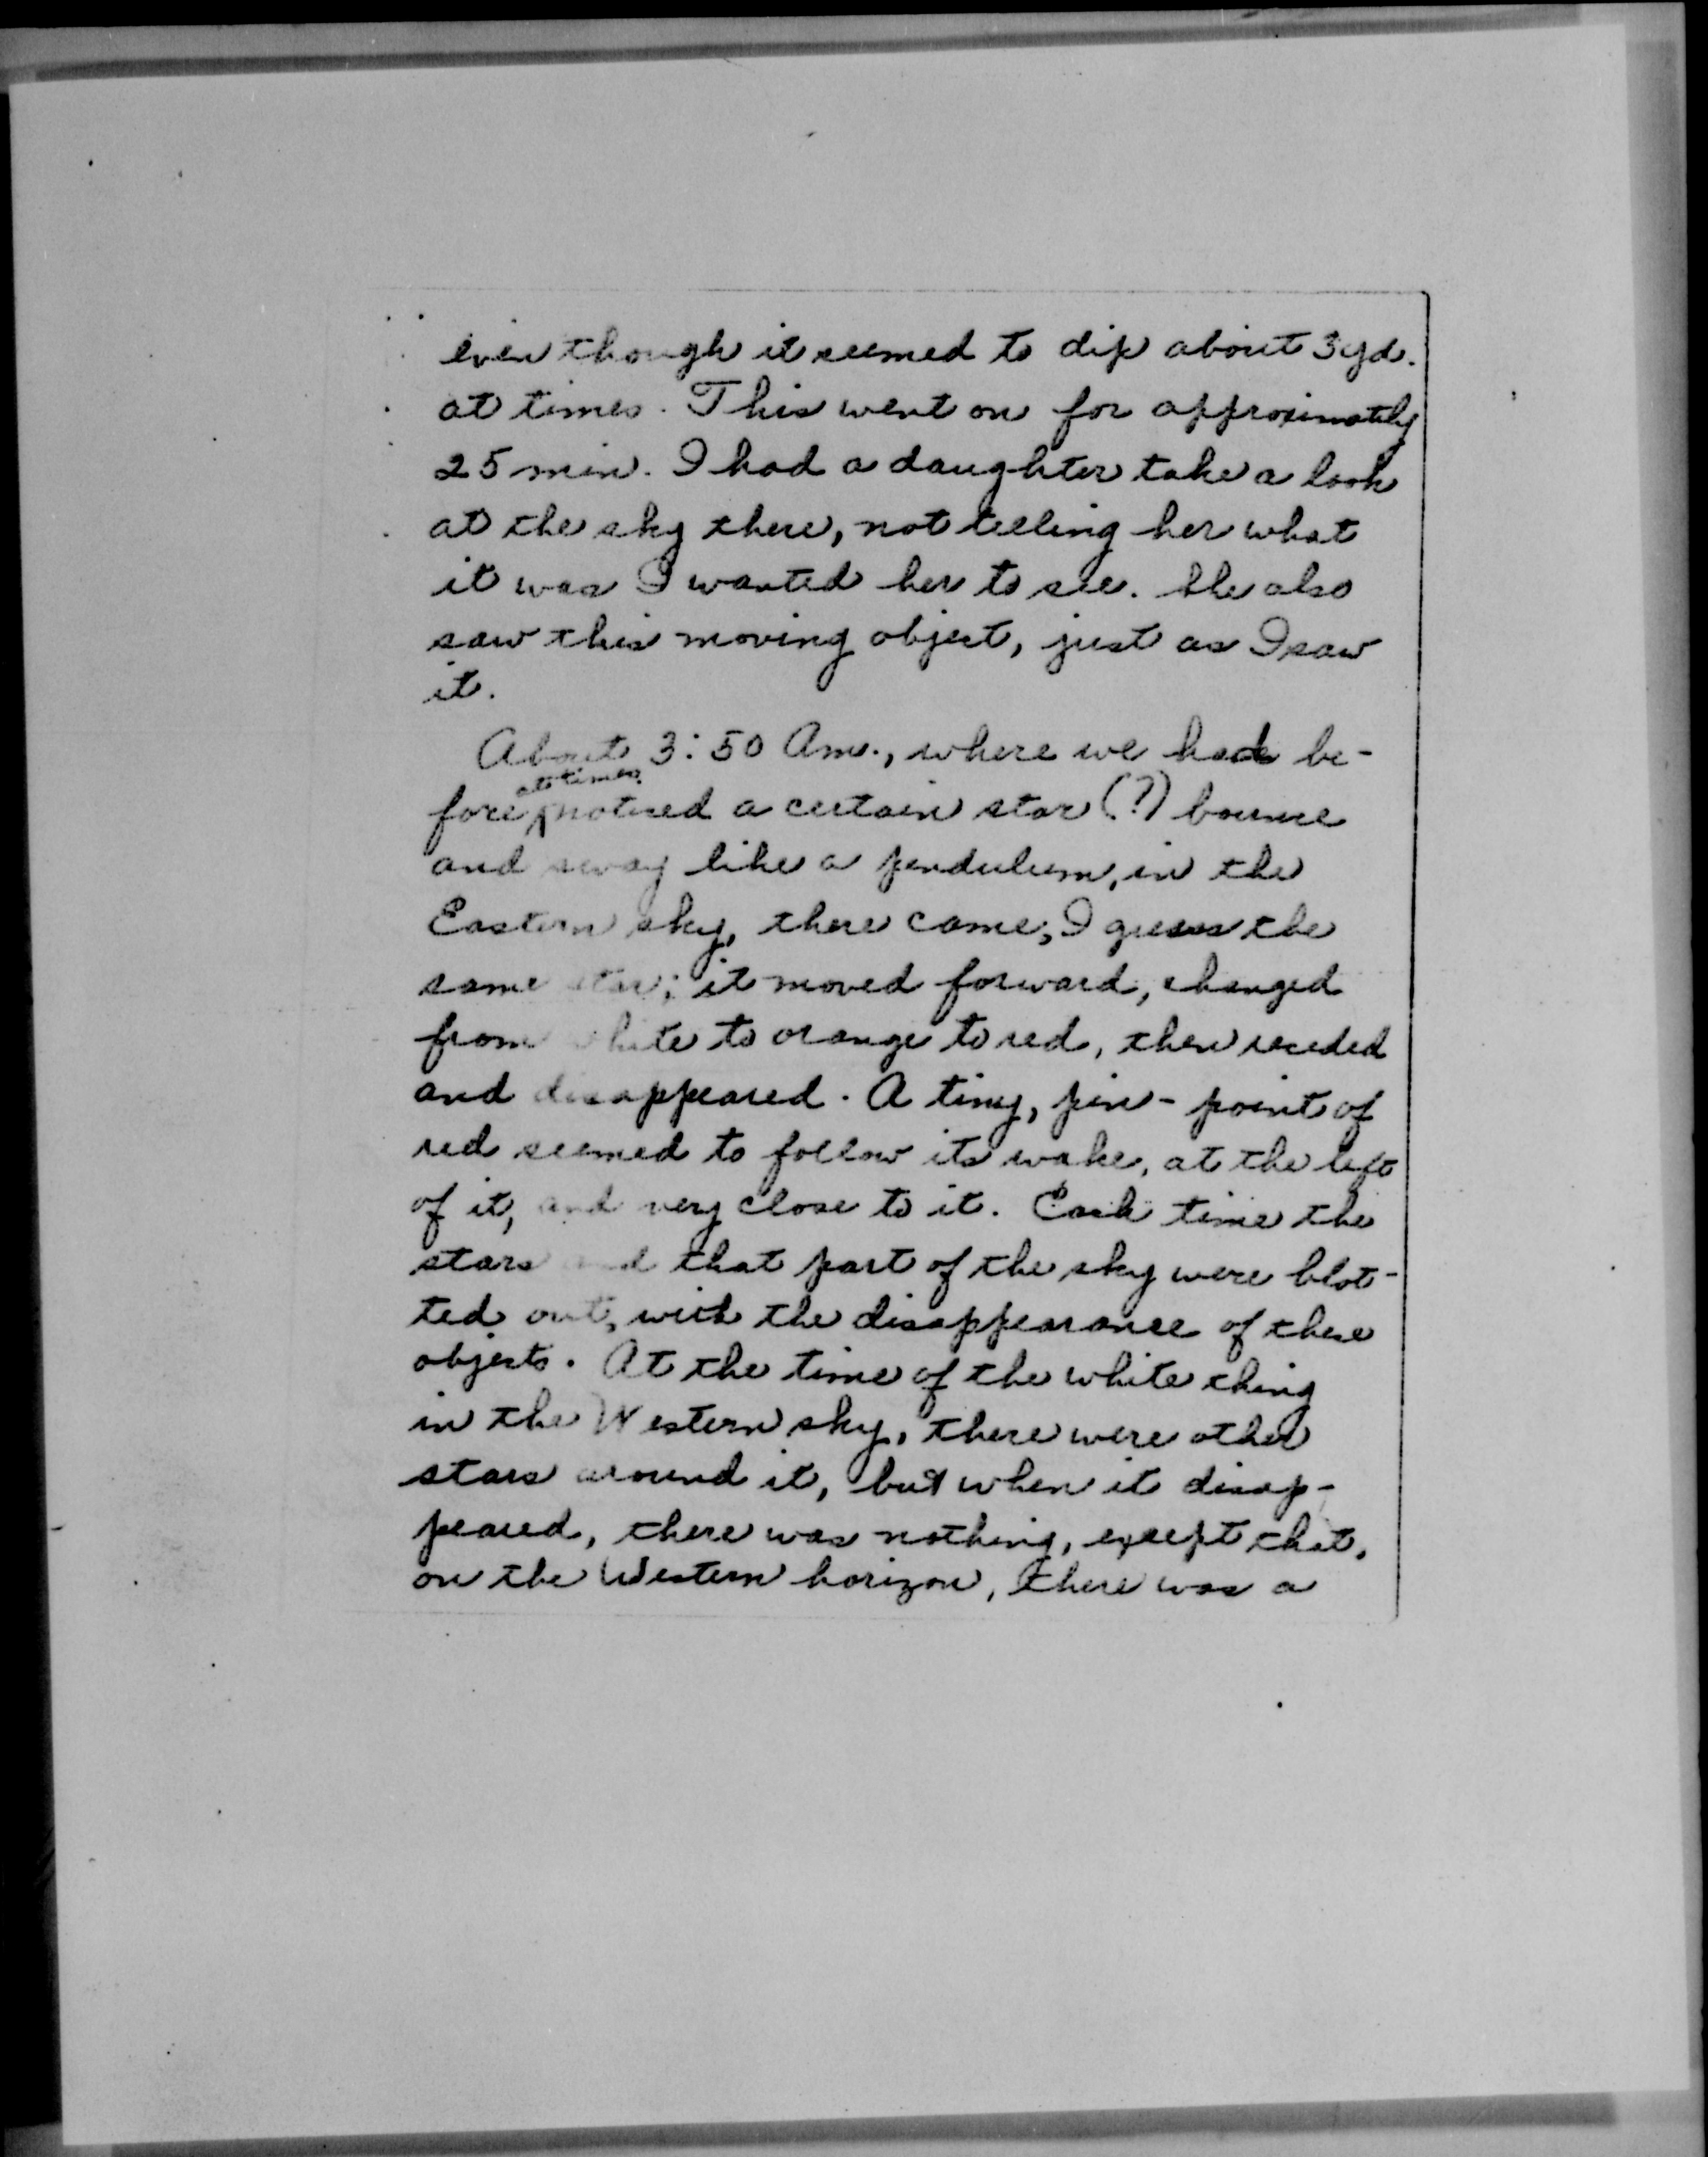 even though it seemed to dip about 3 yd.
at times. This went on for approximately
25 min. I had a daughter take a look
at the sky there, not telling her what
it was I wanted her to see. She also
saw this moving object, just as I saw
it.
About 3:50 Am., where we had be-
at times
fore noticed a certain star (?) bounce
and sway like a pendulum, in the
Eastern sky, there came, I guess the
same star; it moved forward, changed
from white to orange to red, then receded
and disappeared. A tiny, pin-point of
red seemed to follow its wake, at the left
of it, and very close to it. Each time the
stars and that part of the sky were blot-
ted out, with the disappearance of these
objects. At the time of the white thing
in the Western sky, there were other
stars around it, but when it disap-
peared, there was nothing, except that,
on the Western horizon, there was a